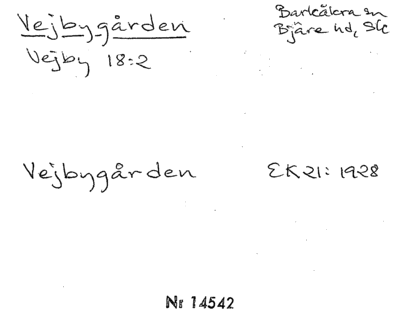 Vejbygården
Barkåkra sn
Vejby 18:2
Bjäre hd, Sk
Vejbygården
EK21: 1928
Nr 14542